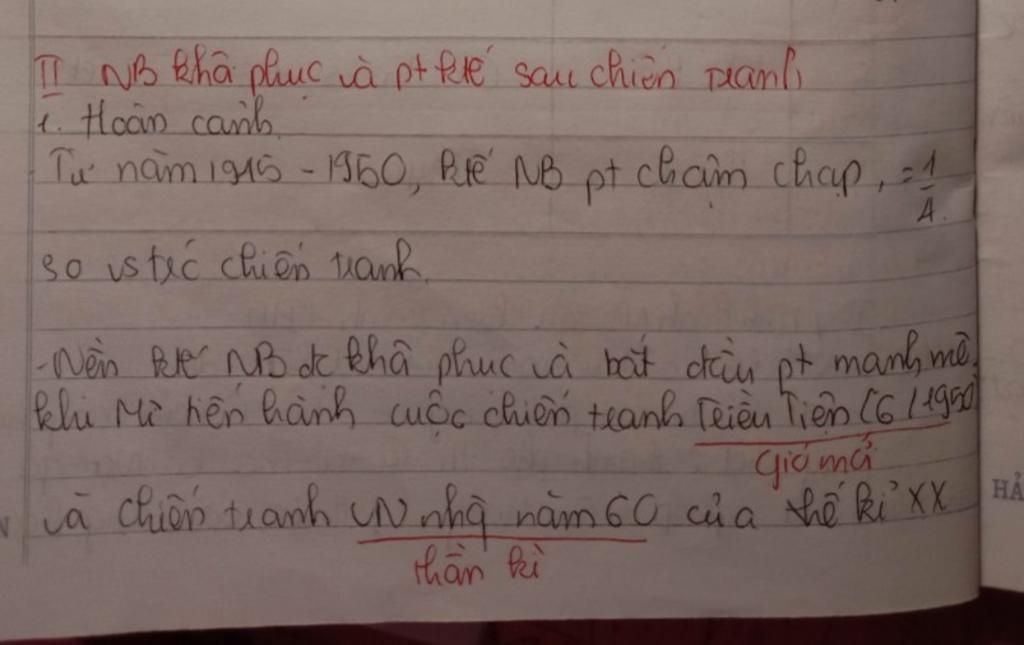 II NB khâ phục và pt ktế sau chiến tranh
1. Hoàn cảnh
Từ năm 1945 - 1950, ktế NB pt chậm chạp, = 1/4
so vs trc chiến tranh.
- Nền ktế NB đc khâ phục và bắt đầu pt mạnh mẽ
khi Mĩ tiến hành cuộc chiến tranh Triều Tiên (6/1950)
gió mới
và chiến tranh VN nhg năm 60 của thế kỉ XX
thần kì
HẢ